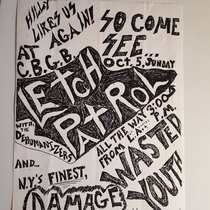 HILLY
LIKES US
AGAIN!
SO COME
SEE...
OCT. 5, SUNDAY
AT
C.B.G.B.
LETCH
PATROL
WITH THE
DEHUMANIZERS
ALL THE WAY
FROM
3:00
A... P.M.
WASTED
YOUTH
AND...
N.Y.'S FINEST,
DAMAGE